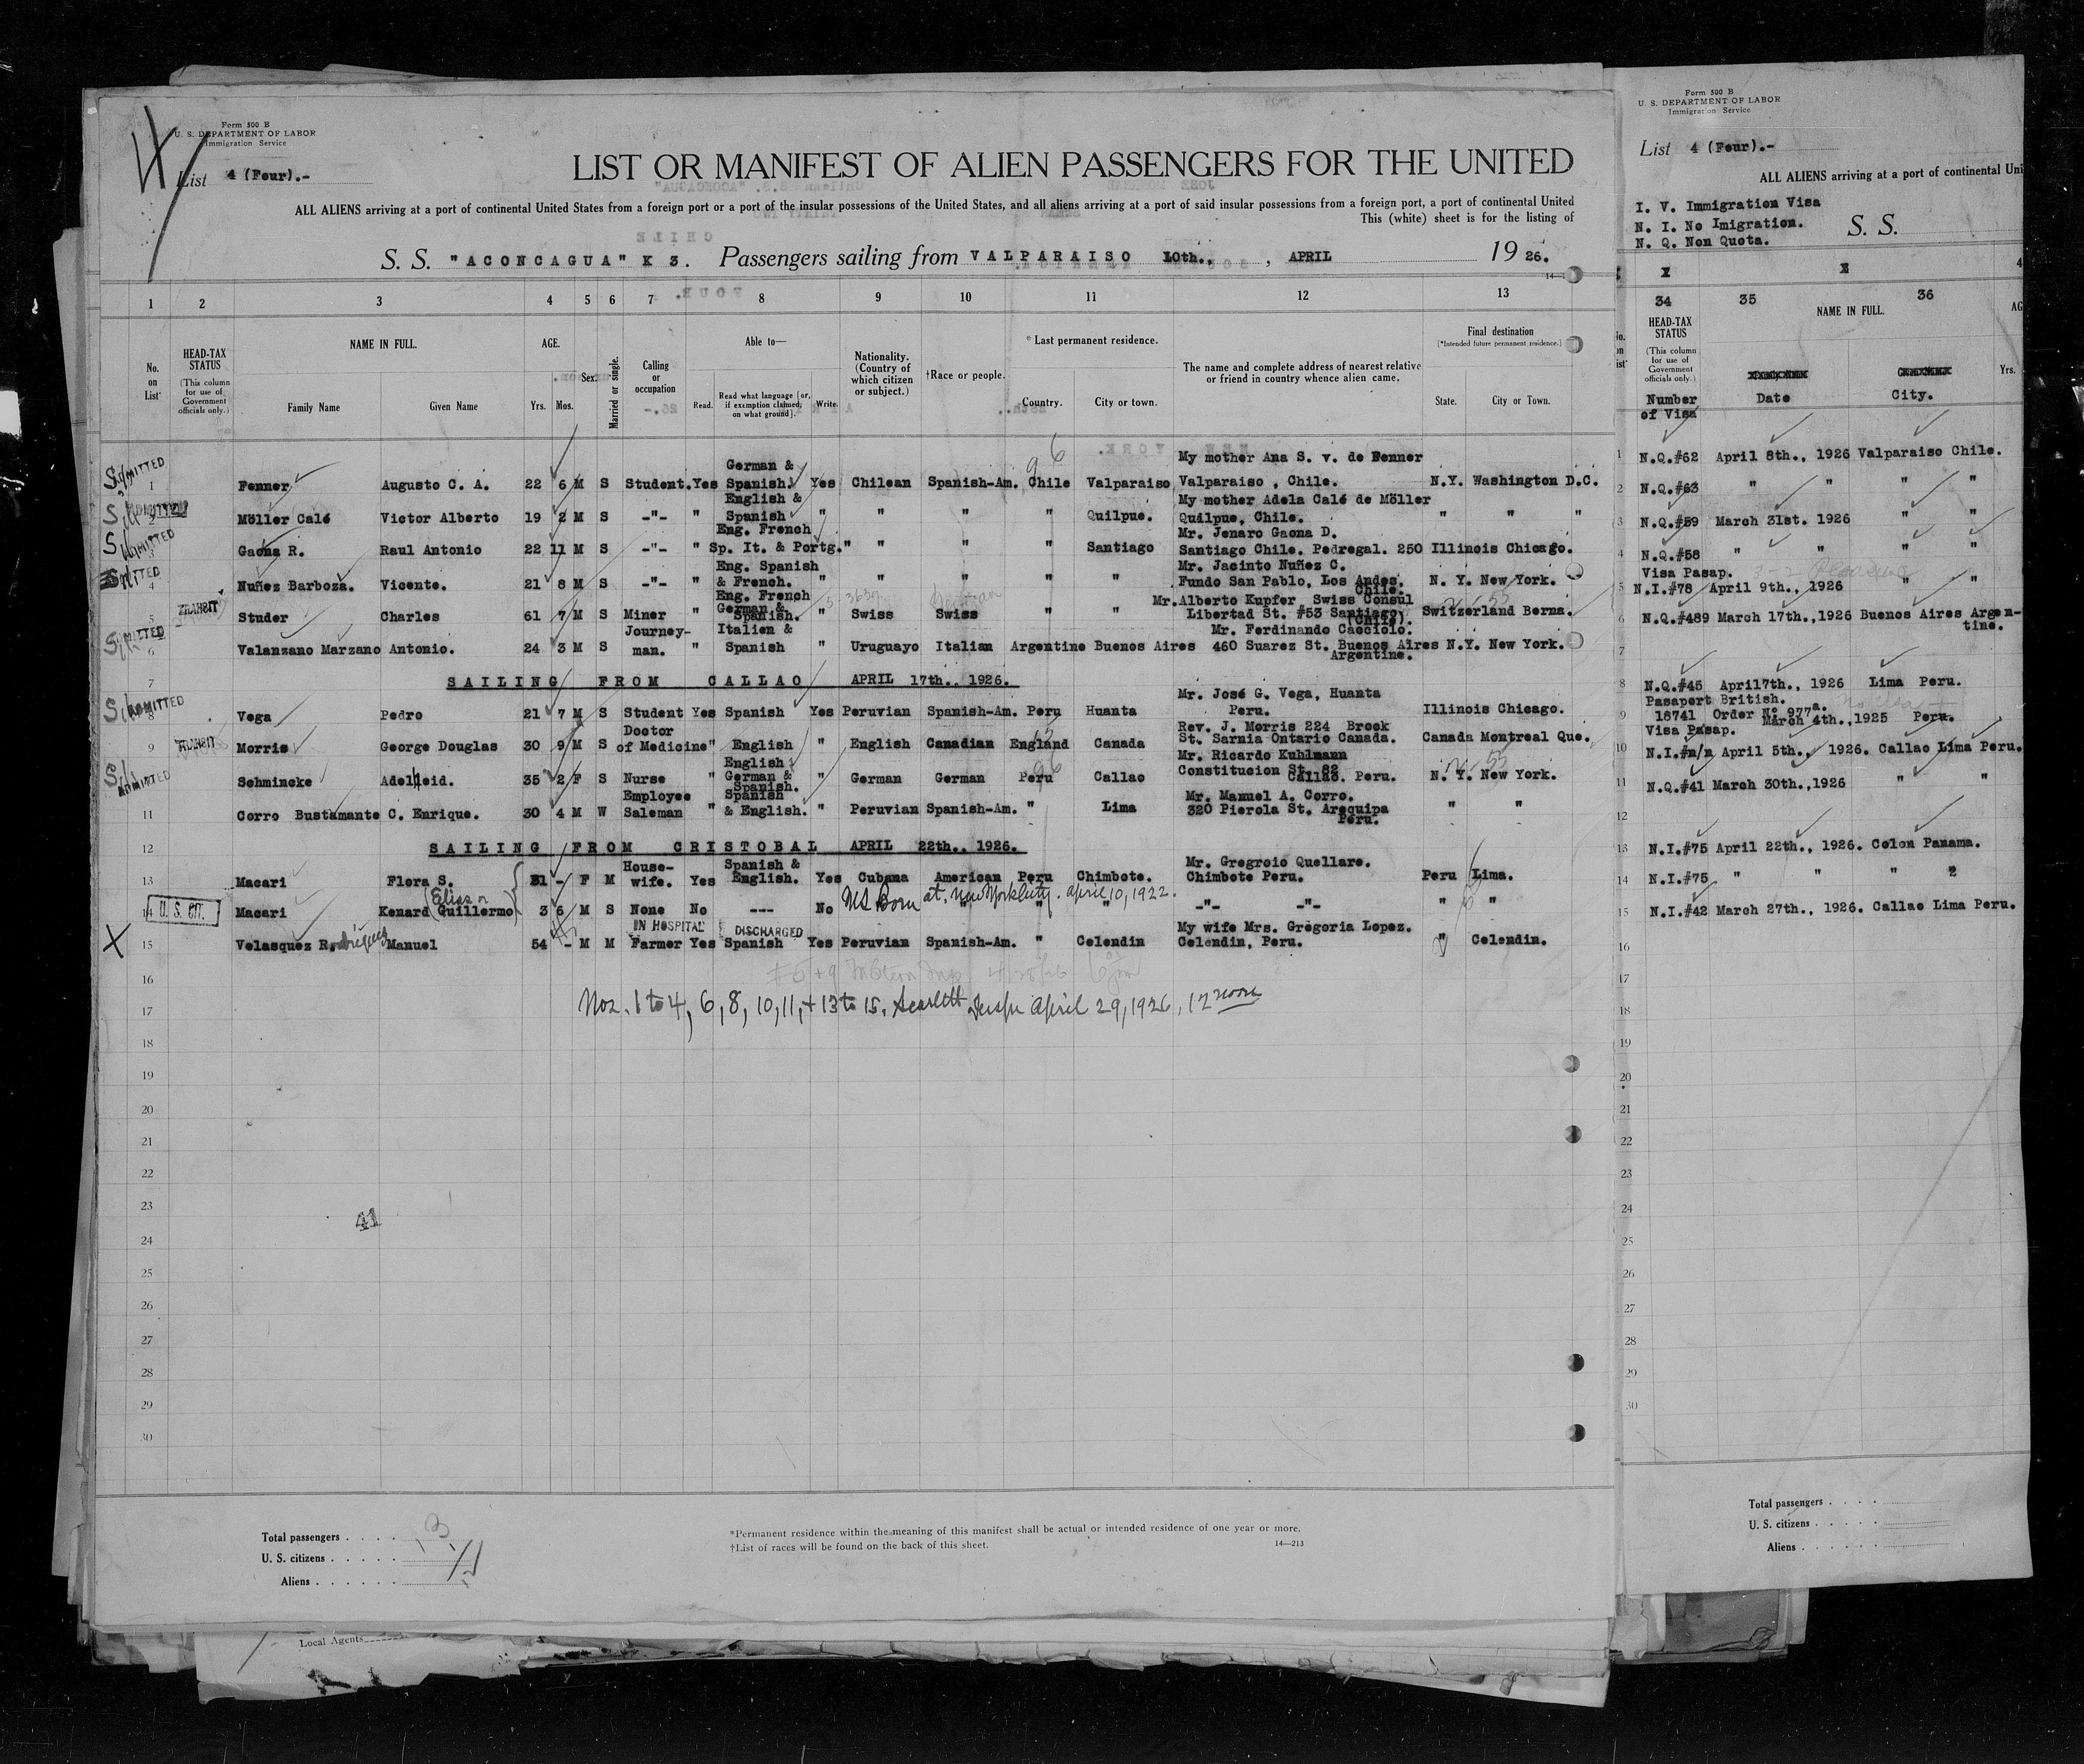 Form 500 B
U. S. DEPARTMENT OF LABOR
Immigration Service
List 4 (Four).-
LIST OR MANIFEST OF ALIEN PASSENGERS FOR THE UNITED
ALL ALIENS arriving at a port of continental United States from a foreign port or a port of the insular possessions of the United States, and all aliens arriving at a port of said insular possessions from a foreign port, a port of continental United
This (white) sheet is for the listing of
S. S. "ACONCAGUA" K 3. Passengers sailing from VALPARAISO 10th., , APRIL 19 26.
1 2 3 4 5 6 7 8 9 10 11 12 13
No. on List
HEAD-TAX STATUS
(This column for use of Government officials only.)
NAME IN FULL.
Family Name Given Name
AGE.
Yrs. Mos.
Sex.
Married or single.
Calling or occupation
Able to—
Read. Read what language [or, if exemption claimed, on what ground]. Write.
Nationality. (Country of which citizen or subject.)
†Race or people.
*Last permanent residence.
Country. City or town.
The name and complete address of nearest relative or friend in country whence alien came.
Final destination
[*Intended future permanent residence.]
State. City or Town.
ADMITTED 1 Fenner Augusto C. A. 22 6 M S Student. Yes German & Spanish. Yes Chilean Spanish-Am. Chile Valparaiso My mother Ana S. v. de Fenner Valparaiso , Chile. N.Y. Washington D.C.
ADMITTED 2 Möller Calé Victor Alberto 19 2 M S -"- " English & Spanish " " " " Quilpue. My mother Adela Calé de Möller Quilpue, Chile. " " "
ADMITTED 3 Gaona R. Raul Antonio 22 11 M S -"- " Eng. French Sp. It. & Portg. " " " " Santiago Mr. Jenaro Gaona D. Santiago Chile. Pedregal. 250 Illinois Chicago.
4 Nuñez Barboza. Vicente. 21 8 M S -"- " Eng. Spanish & French. " " " " " Mr. Jacinto Nuñez C. Fundo San Pablo, Los Andes. Chile. N. Y. New York.
TRANSIT 5 Studer Charles 61 7 M S Miner " Eng. French German & Spanish. " Swiss Swiss " " Mr. Alberto Kupfer Swiss Consul Libertad St. #53 Santiago (Chile). Switzerland Berna.
ADMITTED 6 Valanzano Marzano Antonio. 24 3 M S Journey-man. " Italien & Spanish " Uruguayo Italian Argentine Buenos Aires Mr. Ferdinando Cacciolo. 460 Suarez St. Buenos Aires Argentine. N.Y. New York.
7 SAILING FROM CALLAO APRIL 17th., 1926.
ADMITTED 8 Vega Pedro 21 7 M S Student Yes Spanish Yes Peruvian Spanish-Am. Peru Huanta Mr. José G. Vega, Huanta Peru. Illinois Chicago.
TRANSIT 9 Morris George Douglas 30 9 M S Doctor of Medicine " English " English Canadian England Canada Rev. J. Morris 224 Brock St. Sarnia Ontario Canada. Canada Montreal Que.
ADMITTED Schmincke Adelheid. 35 2 F S Nurse " English German & Spanish. " German German Peru Callao Mr. Ricardo Kuhlmann Constitucion St. 82 Callao. Peru. N. Y. New York.
11 Corro Bustamante C. Enrique. 30 4 M W Employee Saleman " Spanish & English. " Peruvian Spanish-Am. " Lima Mr. Manuel A. Corro. 320 Pierola St. Arequipa Peru. " "
12 SAILING FROM CRISTOBAL APRIL 22th., 1926.
13 Macari Flora S. 31 - F M House-wife. Yes Spanish & English. Yes Cubana American Peru Chimbote. Mr. Gregroio Quellare. Chimbote Peru. Peru Lima.
U. S. CIT. 14 Macari Kenard (Elias or Guillermo) 3 6 M S None No --- No US Born at New York City. April 10, 1922. " " " -"- -"- " "
X 15 Velasquez R. odriguez Manuel 54 - M M IN HOSPITAL Farmer Yes DISCHARGED Spanish Yes Peruvian Spanish-Am. " Celendin My wife Mrs. Gregoria Lopez. Celendin, Peru. " Celendin.
16
17 Nos. 1 to 4, 6, 8, 10, 11, + 13 to 15, Scarlett Inspr April 29, 1926, 12 noon
18
19
20
21
22
23
41
24
25
26
27
28
29
30
Total passengers . . . .
U. S. citizens . . . . .
Aliens . . . . . .
*Permanent residence within the meaning of this manifest shall be actual or intended residence of one year or more.
†List of races will be found on the back of this sheet.
14—213
Local Agents
Form 500 B
U. S. DEPARTMENT OF LABOR
Immigration Service
List 4 (Four).-
ALL ALIENS arriving at a port of continental Uni
I. V. Immigration Visa
N. I. No Imigration.
N. Q. Non Quota.
S. S.
34 35 36
HEAD-TAX STATUS
(This column for use of Government officials only.)
NAME IN FULL.
Yrs.
Number of Visa Date City.
1 N.Q.#62 April 8th., 1926 Valparaiso Chile.
2 N.Q.#63 " " " "
3 N.Q.#59 March 31st. 1926 " "
4 N.Q.#58 " " " "
Visa Pasap.
5 N.I.#78 April 9th., 1926 " "
6 N.Q.#489 March 17th.,1926 Buenos Aires Argen-
tine.
7
8 N.Q.#45 April7th., 1926 Lima Peru.
Pasaport British.
9 18741 Order Nº 977a. March 4th.,1925 Peru.
Visa Pasap.
10 N.I.#n/n April 5th., 1926. Callao Lima Peru.
11 N.Q.#41 March 30th.,1926 " "
12
13 N.I.#75 April 22th., 1926. Colon Panama.
14 N.I.#75 " " "
15 N.I.#42 March 27th., 1926. Callao Lima Peru.
16
17
18
19
20
21
22
23
24
25
26
27
28
29
30
Total passengers . . . .
U. S. citizens . . . . .
Aliens . . . . . .